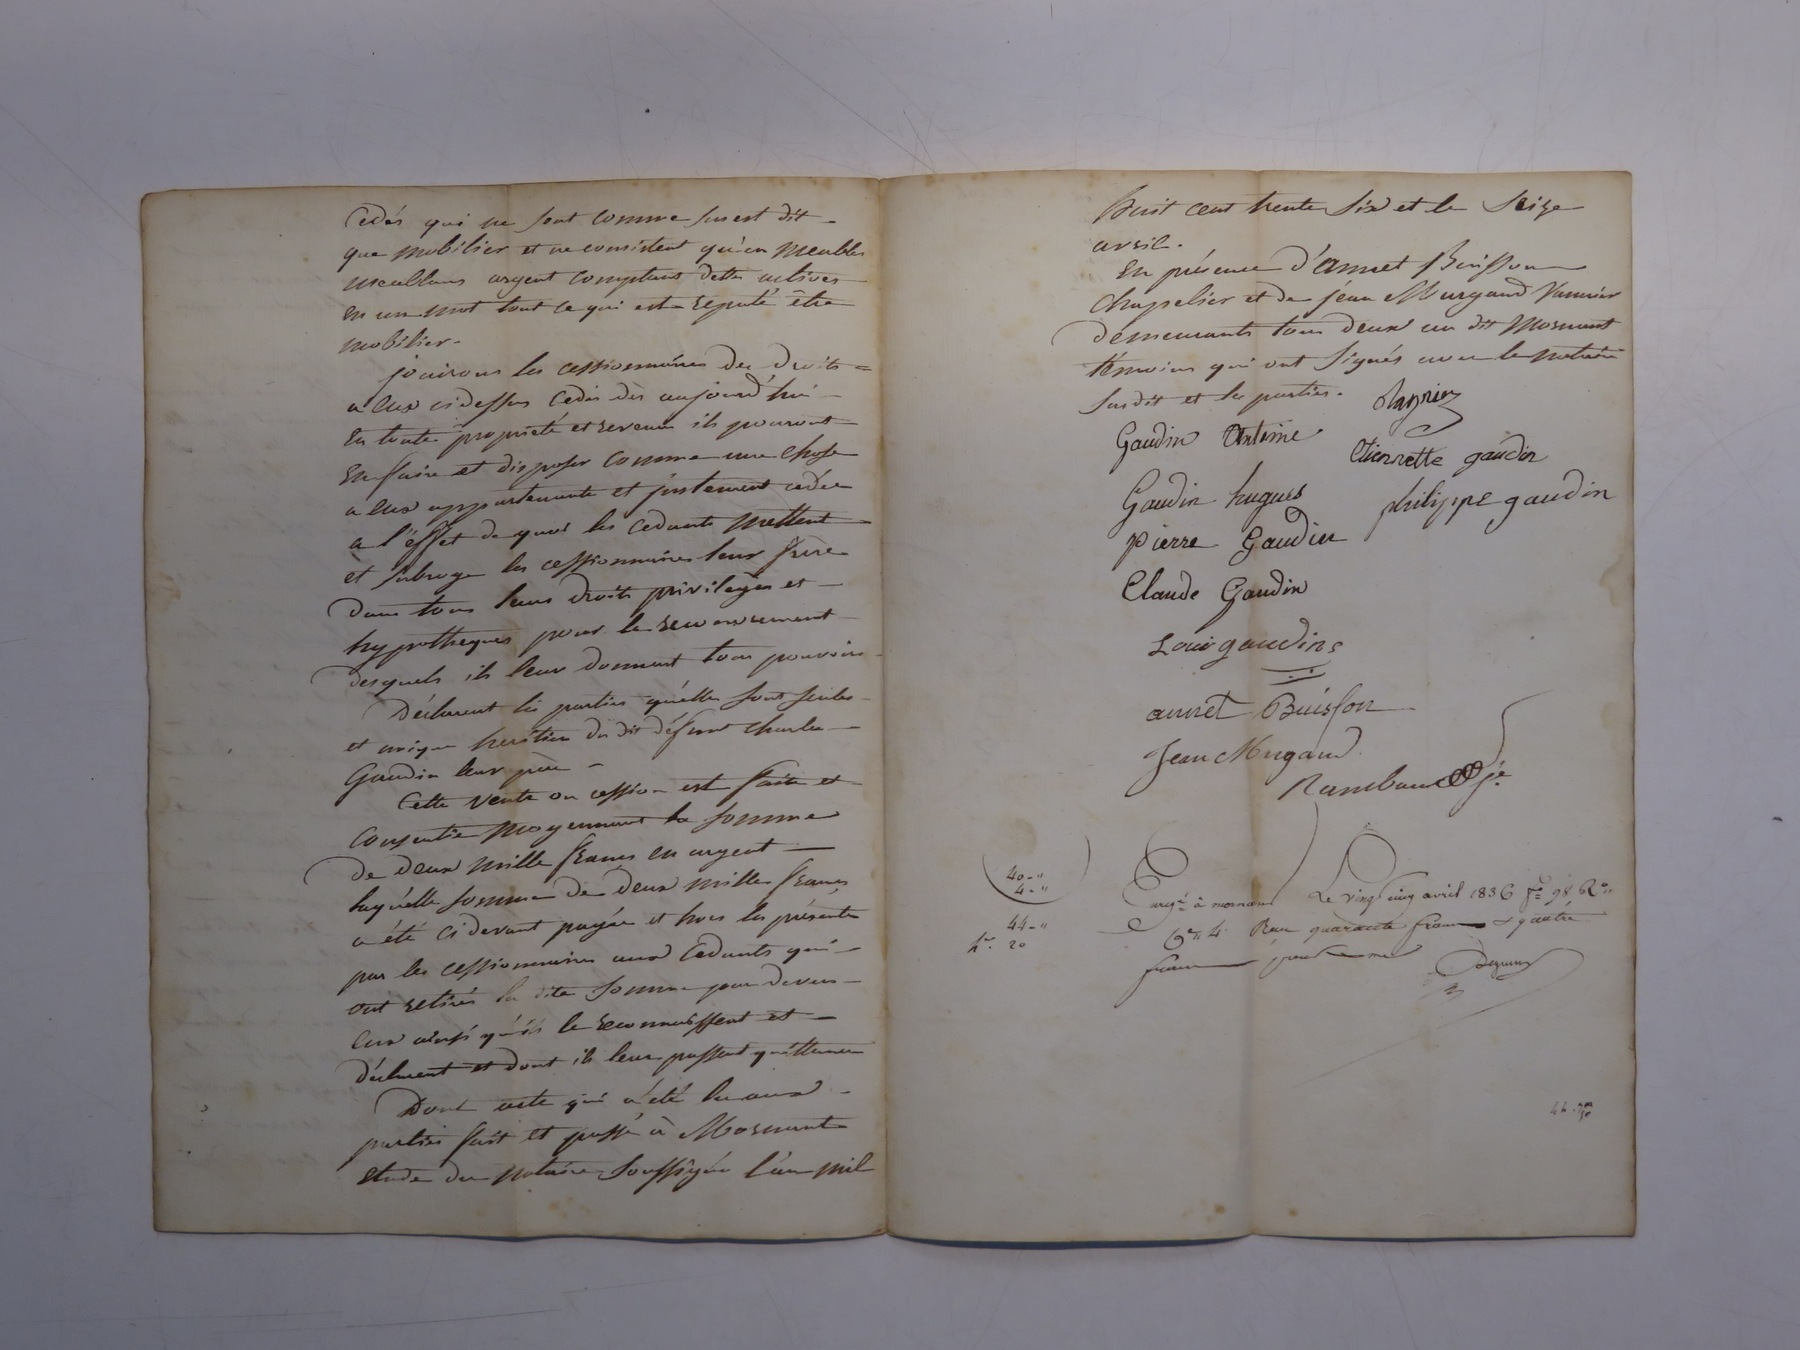 Cédés qui ne sont comme susest dit
que mobilier et ne consistent qu'en meubles
meublans argent comptant dettes actives
en un mot tout ce qui est réputé être
mobilier.
jouirons les cessionnaires des droits
a eux cidessus cédés dès aujourd'hui
En toute propriété et revenu ils pouront
En faire et disposer comme une chose
a eux appartenante et justement cédée
a l'éffet de quoi les cedants mettent
et subroge les cessionnaires leur frère
Dans tous leurs droits privilèges et
hypothèques pour le recouvrement
desquels ils leur donnent tous pouvoirs
Déclarent les parties qu'elles sont seules
et unique heritier du dit défunt Charles
Gaudin leur père
Cette vente ou cession est faite et
Consentie moyennant la somme
de deux mille francs en argent
laquelle somme de deux mille francs
a été ci devant payée et hors les présentes
par les cessionnaires aux Cedants qui
ont retirés la dite somme par devers
eux ainsi qu'ils le reconnaissent et
déclarent et dont ils leur passent quittance
Dont acte qui a été lu aux
parties fait et passé à Mornant
Etude du notaire soussigné l'an mil
huit cent trente six et le Seize
avril.
En présence d'annet Buisson
Chapelier et de jean Murgaud Vannier
demeurants tous deux au dit Mornant
témoins qui ont signés avec le notaire
susdit et les parties.
Gaudin Antoine
Etiennette gaudin
Gaudin hugues
philippe gaudin
pierre Gaudin
Claude Gaudin
Loui gaudins
annet Buisson
Jean Murgaud
Rambaud
40-"
4-"
44-"
20
Enrgé à mornant Le vingt cinq avril 1836 fo 98 Ro
Cse 4 Reçu quarante francs & quatre
francs pour